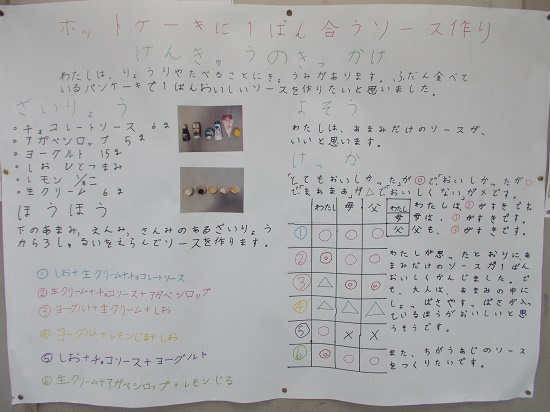 ホットケーキに1ばん合うソース作り
けんきゅうのきっかけ
わたしは、りょうりやたべることにきょうみがあります。ふだん食べて
いるパンケーキで1ばんおいしいソースを作りたいと思いました。
ざいりょう
・チョコレートソース 6g
・アガベシロップ 5g
・ヨーグルト 15g
・しお ひとつまみ
・レモン
・生クリーム 6g
ほうほう
下のあまみ、えんみ、さんみのあるざいりょう
から3しゅるいをえらんでソースを作ります。
①しお+生クリーム+チョコレートソース
②生クリーム+チョコソース+アガベシロップ
③ヨーグルト+生クリーム+しお
④ヨーグルト+レモンじる+しお
⑤しお+チョコソース+ヨーグルト
⑥生クリーム+アガベシロップ+レモンじる
よそう
わたしは、あまみだけのソースが、
いいと思います。
けっか
「とてもおいしかった」が◎で「おいしかった」が○
で「まあまあ」が△で「おいしくない」が×です。
わたし 母 父
① ○ ○ ○
② ◎ ◎ ○
③ △ ◎ ◎
④ △ △ △
⑤ ○ × ×
⑥ ◎ ○ ○
わたし わたしは②がすきです。
母 母は、③がすきです。
父 父も、③がすきです。
わたしが思ったとおりにあ
まみだけのソースが1ばん
おいしくかんじました。で
も、大人は、あまみの中に
しょっぱさやすっぱさが入っ
ているほうがおいしいと思
うそうです。
また、ちがうあじのソース
をつくりたいです。